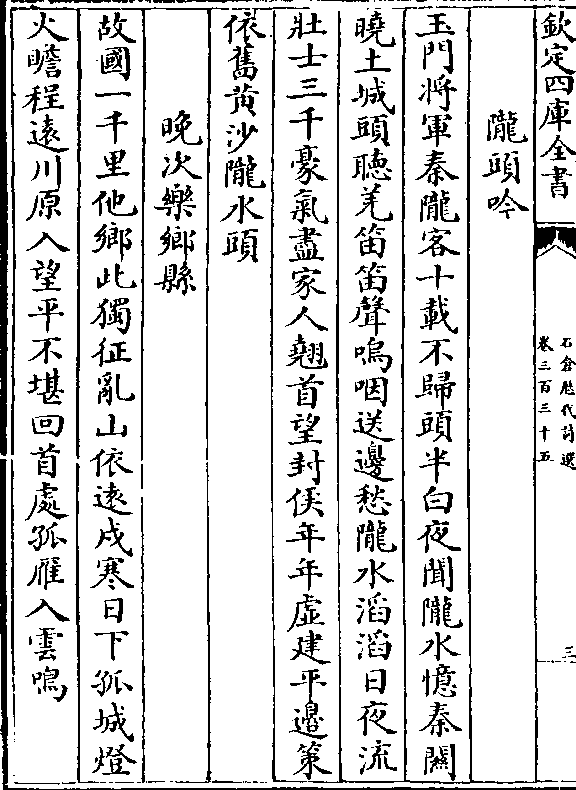 欽定四庫全書
石倉歷代詩選
卷三百三十五
三
隴頭吟
玉門將軍秦隴客十載不歸頭半白夜聞隴水憶秦關
曉土城頭聽羌笛笛聲嗚咽送邊愁隴水滔滔日夜流
壯士三千豪氣盡家人翹首望封侯年年虛建平邊策
依舊黃沙隴水頭
晚次樂鄉縣
故國一千里他鄉此獨征亂山依遠戍寒日下孤城燈
火瞻程遠川原入望平不堪回首處孤雁入雲鳴